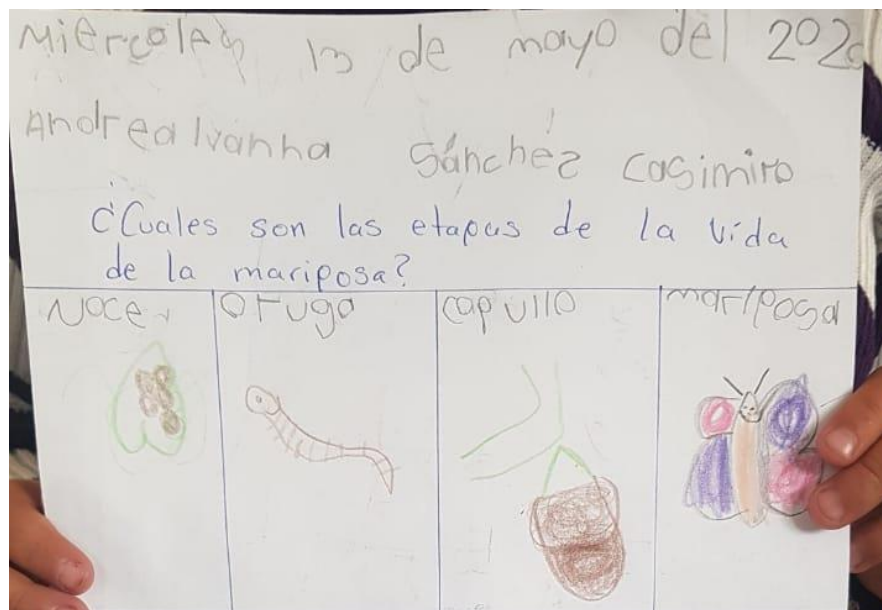 Miércoles 13 de mayo del 202
Andrea Ivanna Sánchez Casimiro
¿Cuales son las etapas de la vida
de la mariposa?
Nacer oruga capullo mariposa